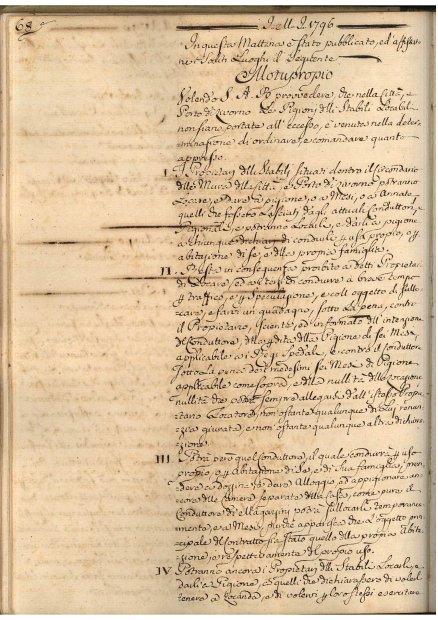 68
1796
In questa Mattina è stato pubblicato, ed affisso
ne soliti Luoghi il seguente
Motuproprio
Volendo S. A. R. provvedere, che nella Città, e
Porto di Livorno le Pigioni delli Stabili Locabili
non siano portate all'eccesso, è venuta nella deter-
minazione di ordinare, e comandare quanto
appresso
I. I Proprietarj delli Stabili situati dentro il secondario
delle Mura della Città, e Porto di Livorno potranno
locare, e dare a pigione, o a Mesi, o a Annate
quelli che fossero lasciati dagli attuali Conduttori, e
Pigionali, e potranno locarli, e darli a pigione
a chiunque di condurli p uso proprio, o p
abitazione di se, e della propria famiglia.
II. Resta in conseguenza proibito a detti Proprietarj
di locare, ed altri di condurre a breve tempo
p traffico, e p speculazione, e coll'oggetto di sullo-
care, e farvi un guadagno, sotto la pena, contro
il Proprietario, sciente, ed informato dell'intenzione
del conduttore, della perdita della Pigione di sei Mesi
applicabile a i Regj Spedali, e contro il conduttore
sotto la pena dei medesimi sei Mesi di Pigione
applicabile come sopra, e della nullità della locazione
nullità che potrà sempre allegarsi dall'istesso Proprie-
tario Locatore, non ostante qualunque di lui renun-
zia giurata, e non ostante qualunque altra dichiara-
zione.
III. Potrà però quel conduttore, il quale condurrà p uso
proprio, o p Abitazione di se, e di sua famiglia, pren-
dere a dozzina, e dare Alloggio, ed appigionare an-
cora delle camere separate della casa, come pure il
Conduttore di Magazzini potrà sullocarli temporaria-
mente, e a Mesi, purchè apparisca che l'oggetto prin-
cipale del contratto sia stato quello della propria Abita-
zione, o respettivamente del proprio uso.
IV. Potranno ancora i Proprietarj delli Stabili locarli, e
darli a Pigione, a quelli che dichiarassero di volerli
tenere a Locanda, e di valersi p loro stessi e esercitare